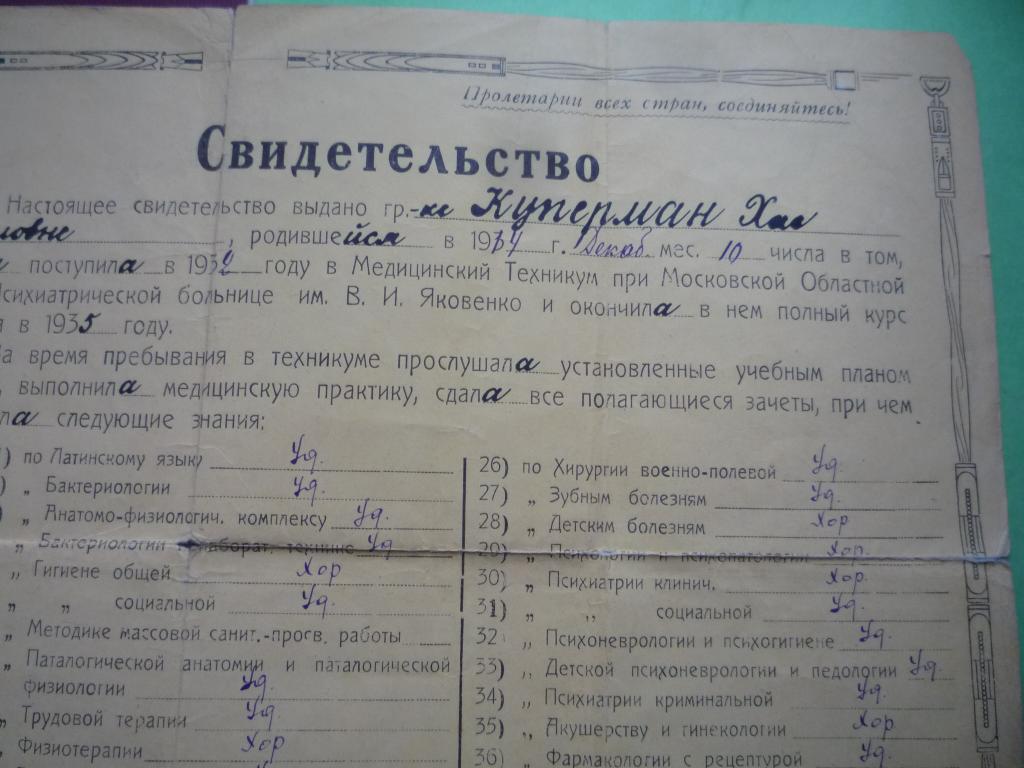 Пролетарии всех стран, соединяйтесь!
Свидетельство
Настоящее свидетельство выдано гр.-ке Куперман
овне, родившейся в 19 г. Декаб. мес. 10 числа в том,
поступила в 1932 году в Медицинский Техникум при Московской Областной
Психиатрической больнице им. В. И. Яковенко и окончила в нем полный курс
в 1935 году.
За время пребывания в техникуме прослушала установленные учебным планом
, выполнила медицинскую практику, сдала все полагающиеся зачеты, при чем
ла следующие знания:
) по Латинскому языку Уд.
) „ Бактериологии Уд.
) „ Анатомо-физиологич. комплексу Уд.
„ Бактериологии лаборат. технике Уд
„ Гигиене общей Хор
„ „ социальной Уд.
„ Методике массовой санит.-просв. работы
„ Паталогической анатомии и паталогической
физиологии Уд.
„ Трудовой терапии Уд.
„ Физиотерапии Хор
26) по Хирургии военно-полевой Уд.
27) „ Зубным болезням Уд.
28) „ Детским болезням Хор
29) „ Психологии и психопатологии Хор.
30) „ Психиатрии клинич. Хор.
31) „ „ социальной Уд.
32) „ Психоневрологии и психогигиене Уд.
33) „ Детской психоневрологии и педологии Уд.
34) „ Психиатрии криминальной Уд.
35) „ Акушерству и гинекологии Хор
36) „ Фармакологии с рецептурой Уд.